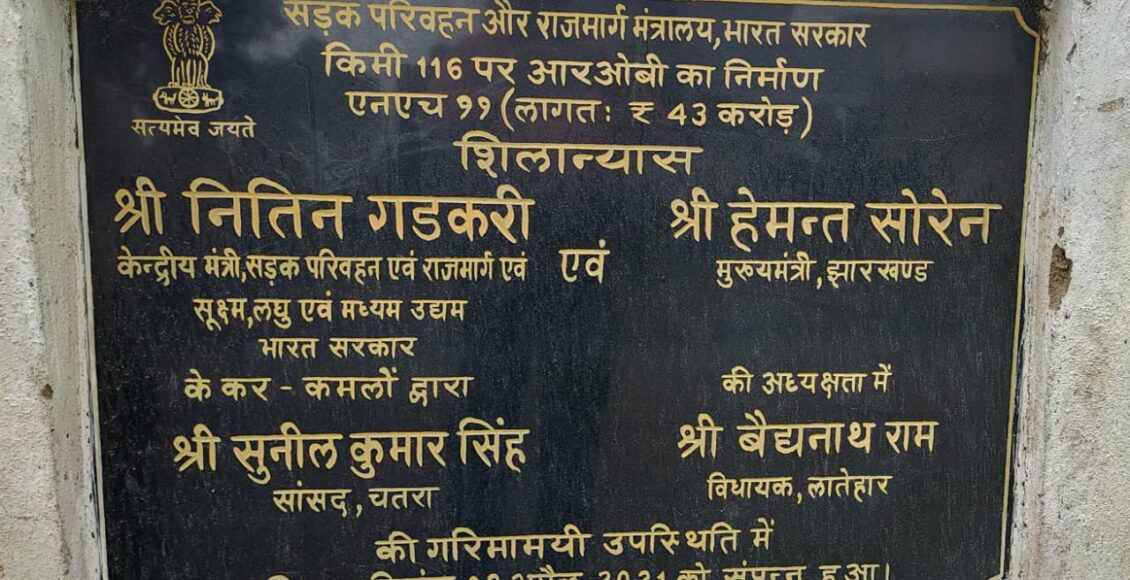 सड़क परिवहन और राजमार्ग मंत्रालय,भारत सरकार
किमी 116 पर आरओबी का निर्माण
एनएच ९९ (लागतः ₹ 43 करोड़)
सत्यमेव जयते
शिलान्यास
श्री नितिन गडकरी
केन्द्रीय मंत्री,सड़क परिवहन एवं राजमार्ग एवं
सूक्ष्म,लघु एवं मध्यम उद्यम
भारत सरकार
के कर - कमलों द्वारा
एवं
श्री हेमन्त सोरेन
मुख्यमंत्री,झारखण्ड
की अध्यक्षता में
श्री सुनील कुमार सिंह
सांसद,चतरा
श्री बैद्यनाथ राम
विधायक,लातेहार
की गरिमामयी उपस्थिति में
अप्रैल 2021 को संपन्न हुआ।